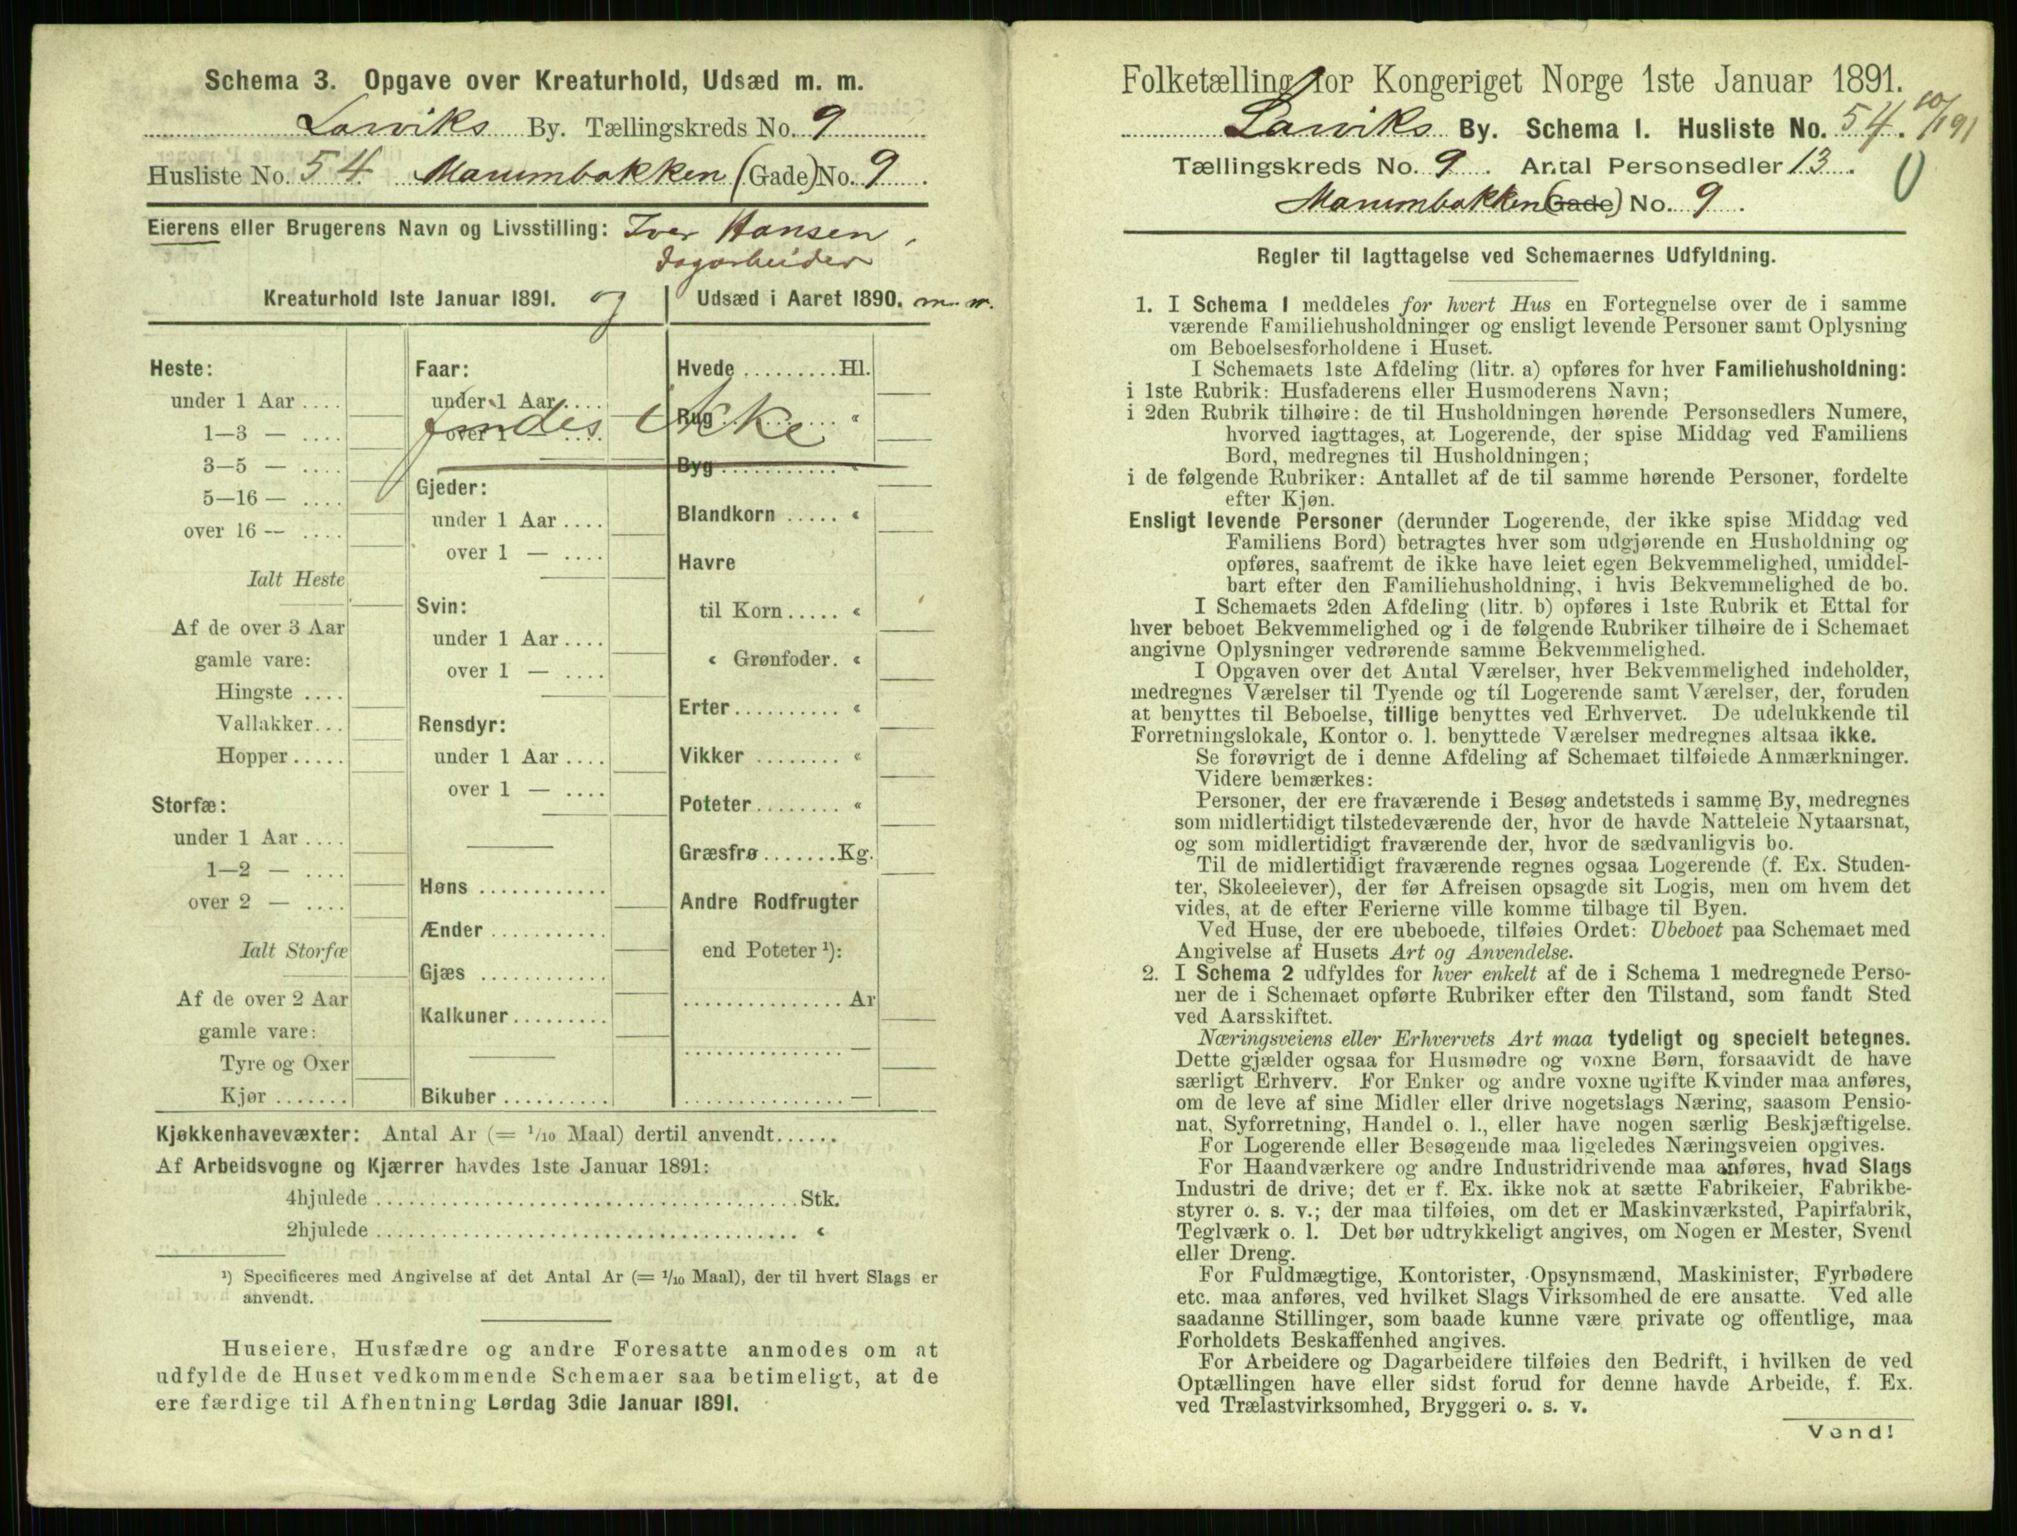 Schema 3. Opgave over Kreaturhold, Udsæd m. m.
Larviks By. Tællingskreds No. 9
Husliste No. 54 Manumbakken (Gade) No. 9
Eierens eller Brugerens Navn og Livsstilling: Iver Hansen,
dagarbeider
Kreaturhold 1ste Januar 1891. og Udsæd i Aaret 1890. m. m.
findes ikke
Heste:
under 1 Aar ....
1—3 — ....
3—5 — ....
5—16 — ....
over 16 — ....
Ialt Heste
Af de over 3 Aar
gamle vare:
Hingste ....
Vallakker...
Hopper.....
Storfæ:
under 1 Aar ....
1—2 — ....
over 2 — ....
Ialt Storfæ
Af de over 2 Aar
gamle vare:
Tyre og Oxer
Kjør .......
Faar:
under 1 Aar ....
over 1 — ....
Gjeder:
under 1 Aar ....
over 1 — ....
Svin:
under 1 Aar ....
over 1 — ....
Rensdyr:
under 1 Aar ....
over 1 — ....
Høns ............
Ænder ...........
Gjæs ............
Kalkuner.........
Bikuber ..........
Hvede .........Hl.
Rug ............ «
Byg ............ «
Blandkorn ..... «
Havre
til Korn ..... «
« Grønfoder. «
Erter.......... «
Vikker ........ «
Poteter........ «
Græsfrø .......Kg.
Andre Rodfrugter
end Poteter ¹):
............... Ar
............... —
............... —
Kjøkkenhavevæxter: Antal Ar (= 1/10 Maal) dertil anvendt......
Af Arbeidsvogne og Kjærrer havdes 1ste Januar 1891:
4hjulede ........................................ Stk.
2hjulede ........................................ «
¹) Specificeres med Angivelse af det Antal Ar (= 1/10 Maal), der til hvert Slags er
anvendt.
Huseiere, Husfædre og andre Foresatte anmodes om at
udfylde de Huset vedkommende Schemaer saa betimeligt, at de
ere færdige til Afhentning Lørdag 3die Januar 1891.
Folketælling for Kongeriget Norge 1ste Januar 1891.
Larviks By. Schema 1. Husliste No. 54. 10/1 91
Tællingskreds No. 9. Antal Personsedler 13.
Manumbakken (Gade) No. 9.
Regler til Iagttagelse ved Schemaernes Udfyldning.
1. I Schema 1 meddeles for hvert Hus en Fortegnelse over de i samme
værende Familiehusholdninger og ensligt levende Personer samt Oplysning
om Beboelsesforholdene i Huset.
I Schemaets 1ste Afdeling (litr. a) opføres for hver Familiehusholdning:
i 1ste Rubrik: Husfaderens eller Husmoderens Navn;
i 2den Rubrik tilhøire: de til Husholdningen hørende Personsedlers Numere,
hvorved iagttages, at Logerende, der spise Middag ved Familiens
Bord, medregnes til Husholdningen;
i de følgende Rubriker: Antallet af de til samme hørende Personer, fordelte
efter Kjøn.
Ensligt levende Personer (derunder Logerende, der ikke spise Middag ved
Familiens Bord) betragtes hver som udgjørende en Husholdning og
opføres, saafremt de ikke have leiet egen Bekvemmelighed, umiddel-
bart efter den Familiehusholdning, i hvis Bekvemmelighed de bo.
I Schemaets 2den Afdeling (litr. b) opføres i 1ste Rubrik et Ettal for
hver beboet Bekvemmelighed og i de følgende Rubriker tilhøire de i Schemaet
angivne Oplysninger vedrørende samme Bekvemmelighed.
I Opgaven over det Antal Værelser, hver Bekvemmelighed indeholder,
medregnes Værelser til Tyende og til Logerende samt Værelser, der, foruden
at benyttes til Beboelse, tillige benyttes ved Erhvervet. De udelukkende til
Forretningslokale, Kontor o. l. benyttede Værelser medregnes altsaa ikke.
Se forøvrigt de i denne Afdeling af Schemaet tilføiede Anmærkninger.
Videre bemærkes:
Personer, der ere fraværende i Besøg andetsteds i samme By, medregnes
som midlertidigt tilstedeværende der, hvor de havde Natteleie Nytaarsnat,
og som midlertidigt fraværende der, hvor de sædvanligvis bo.
Til de midlertidigt fraværende regnes ogsaa Logerende (f. Ex. Studen-
ter, Skoleeiever), der før Afreisen opsagde sit Logis, men om hvem det
vides, at de efter Ferierne ville komme tilbage til Byen.
Ved Huse, der ere ubeboede, tilføies Ordet: Ubeboet paa Schemaet med
Angivelse af Husets Art og Anvendelse.
2. I Schema 2 udfyldes for hver enkelt af de i Schema 1 medregnede Perso-
ner de i Schemaet opførte Rubriker efter den Tilstand, som fandt Sted
ved Aarsskiftet.
Næringsveiens eller Erhvervets Art maa tydeligt og specielt betegnes.
Dette gjælder ogsaa for Husmødre og voxne Børn, forsaavidt de have
særligt Erhverv. For Enker og andre voxne ugifte Kvinder maa anføres,
om de leve af sine Midler eller drive nogetslags Næring, saasom Pensio-
nat, Syforretning, Handel o. l., eller have nogen særlig Beskjæftigelse.
For Logerende eller Besøgende maa ligeledes Næringsveien opgives.
For Haandværkere og andre Industridrivende maa anføres, hvad Slags
Industri de drive; det er f. Ex. ikke nok at sætte Fabrikeier, Fabrikbe-
styrer o. s. v.; der maa tilføies, om det er Maskinværksted, Papirfabrik,
Teglværk o. l. Det bør udtrykkeligt angives, om Nogen er Mester, Svend
eller Dreng.
For Fuldmægtige, Kontorister, Opsynsmænd, Maskinister, Fyrbødere
etc. maa anføres, ved hvilket Slags Virksomhed de ere ansatte. Ved alle
saadanne Stillinger, som baade kunne være private og offentlige, maa
Forholdets Beskaffenhed angives.
For Arbeidere og Dagarbeidere tilføies den Bedrift, i hvilken de ved
Optællingen have eller sidst forud for denne havde Arbeide, f. Ex.
ved Trælastvirksomhed, Bryggeri o. s. v.
Vend!